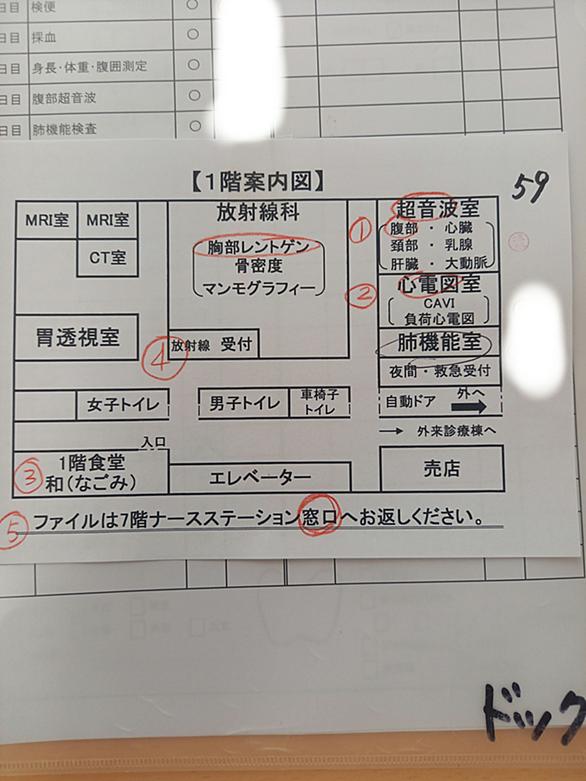 日目 検便 ○
日目 採血 ○
日目 身長・体重・腹囲測定 ○
日目 腹部超音波 ○
日目 肺機能検査 ○
【1階案内図】
59
MRI室 MRI室
CT室
胃透視室
放射線科
胸部レントゲン
骨密度
マンモグラフィー
④ 放射線 受付
① 超音波室
腹部・心臓
頚部・乳腺
肝臓・大動脈
② 心電図室
CAVI
負荷心電図
肺機能室
夜間・救急受付
女子トイレ
男子トイレ
車椅子
トイレ
自動ドア 外へ
→ 外来診療棟へ
入口
③ 1階食堂
和(なごみ)
エレベーター
売店
⑤ ファイルは7階ナースステーション窓口へお返しください。
ドック